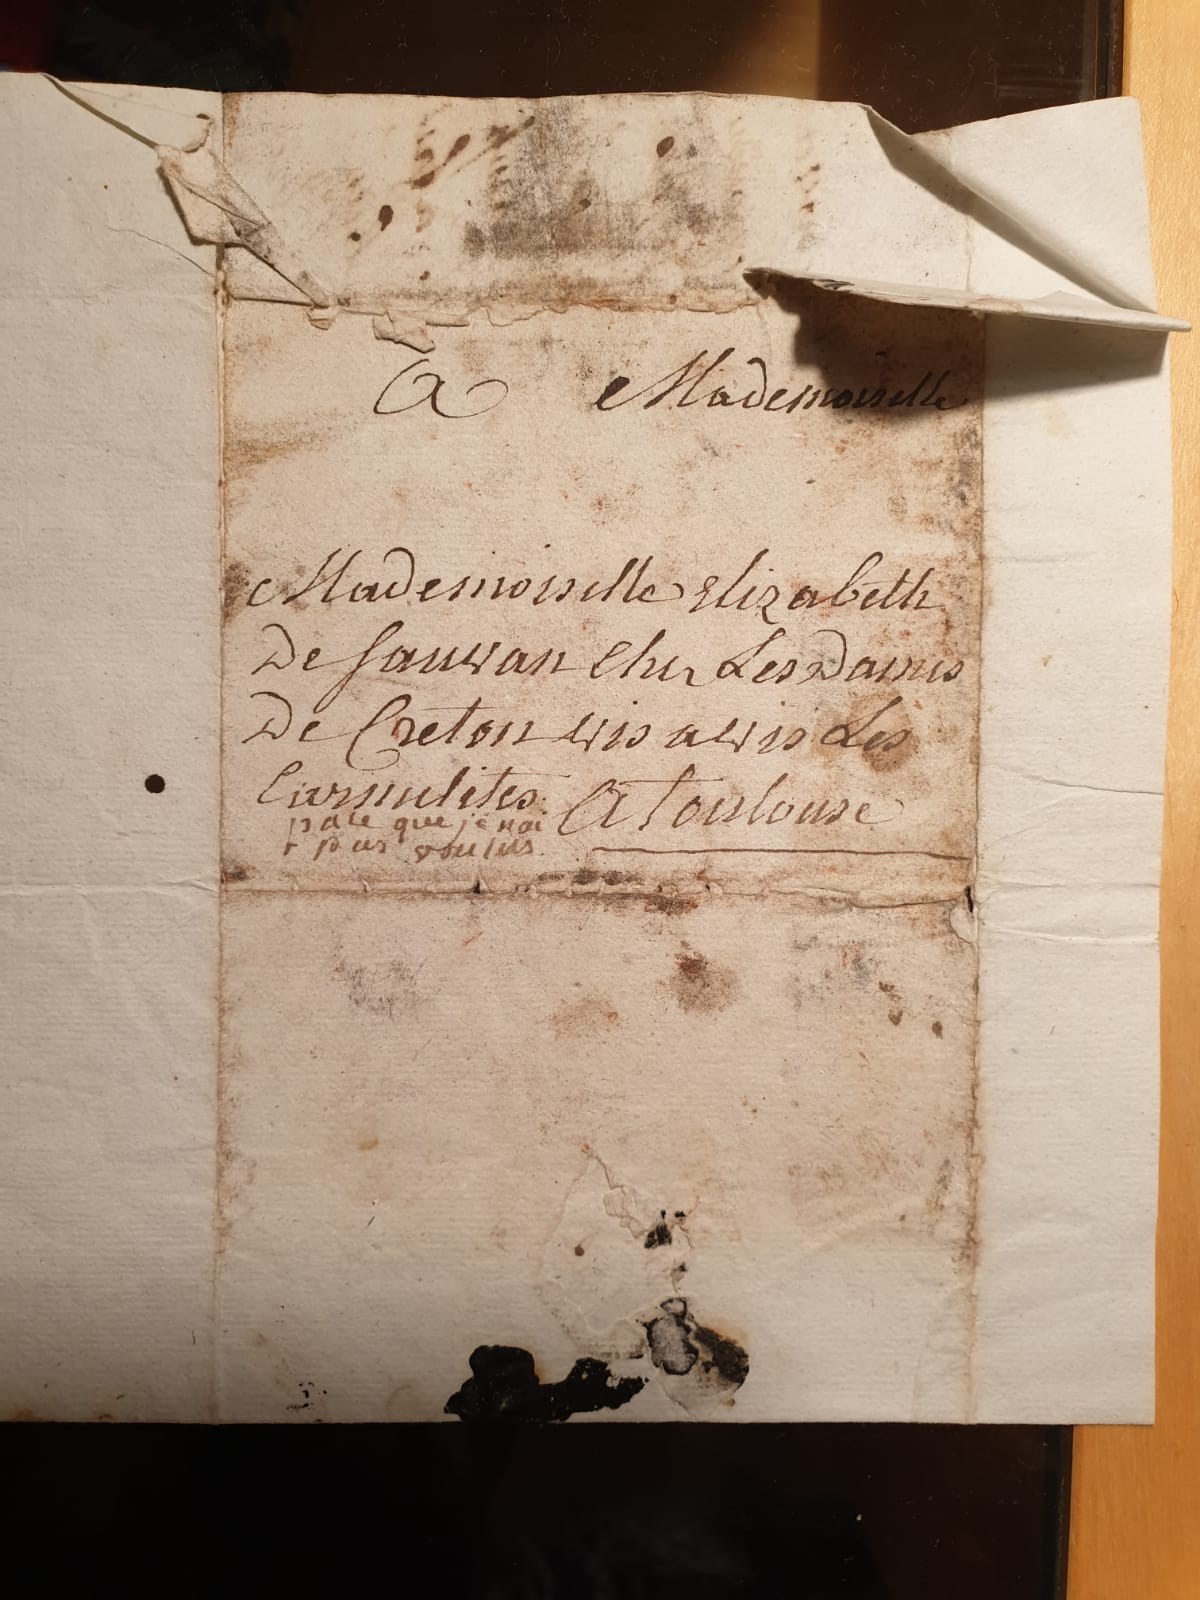 A Mademoiselle
Mademoiselle Elizabeth
De Sauvan Chez Les Dames
De Creton vis a vis Les
Carmelites A Toulouse
pace que je nai
pas voulus